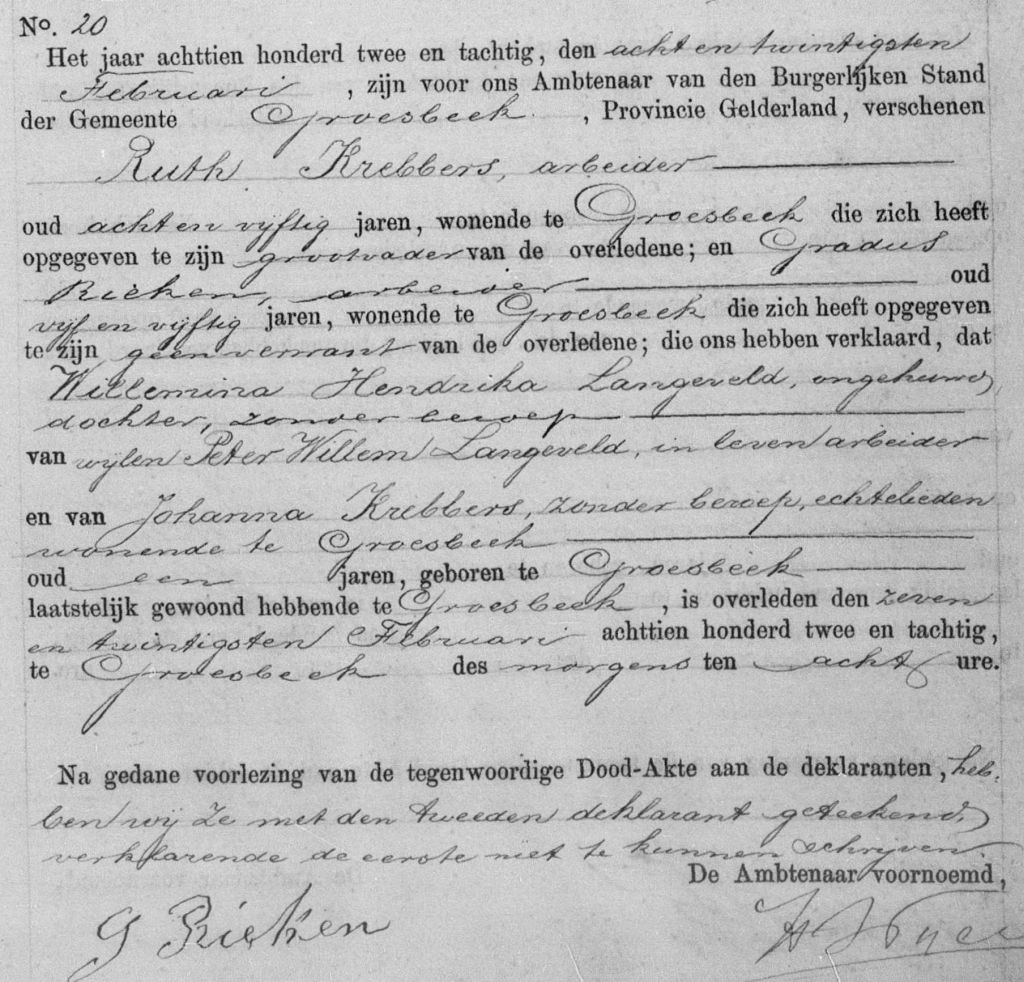 No. 20
Het jaar achttien honderd twee en tachtig, den acht en twintigsten
Februari , zijn voor ons Ambtenaar van den Burgerlijken Stand
der Gemeente Groesbeek , Provincie Gelderland, verschenen
Ruth Krebbers, arbeider
oud acht en vijftig jaren, wonende te Groesbeek die zich heeft
opgegeven te zijn grootvader van de overledene; en Gradus
Rieken, arbeider oud
vijf en vijftig jaren, wonende te Groesbeek die zich heeft opgegeven
te zijn geen verwant van de overledene; die ons hebben verklaard, dat
Willemina Hendrika Langeveld, ongehuwd
dochter, zonder beroep
van wijlen Peter Willem Langeveld, in leven arbeider
en van Johanna Krebbers, zonder beroep, echtelieden
wonende te Groesbeek
oud een jaren, geboren te Groesbeek
laatstelijk gewoond hebbende te Groesbeek , is overleden den zeven
en twintigsten Februari achttien honderd twee en tachtig,
te Groesbeek des morgens ten acht ure.
Na gedane voorlezing van de tegenwoordige Dood-Akte aan de deklaranten, heb-
ben wij ze met den tweeden deklarant geteekend,
verklarende de eerste niet te kunnen schrijven.
De Ambtenaar voornoemd,
G Rieken